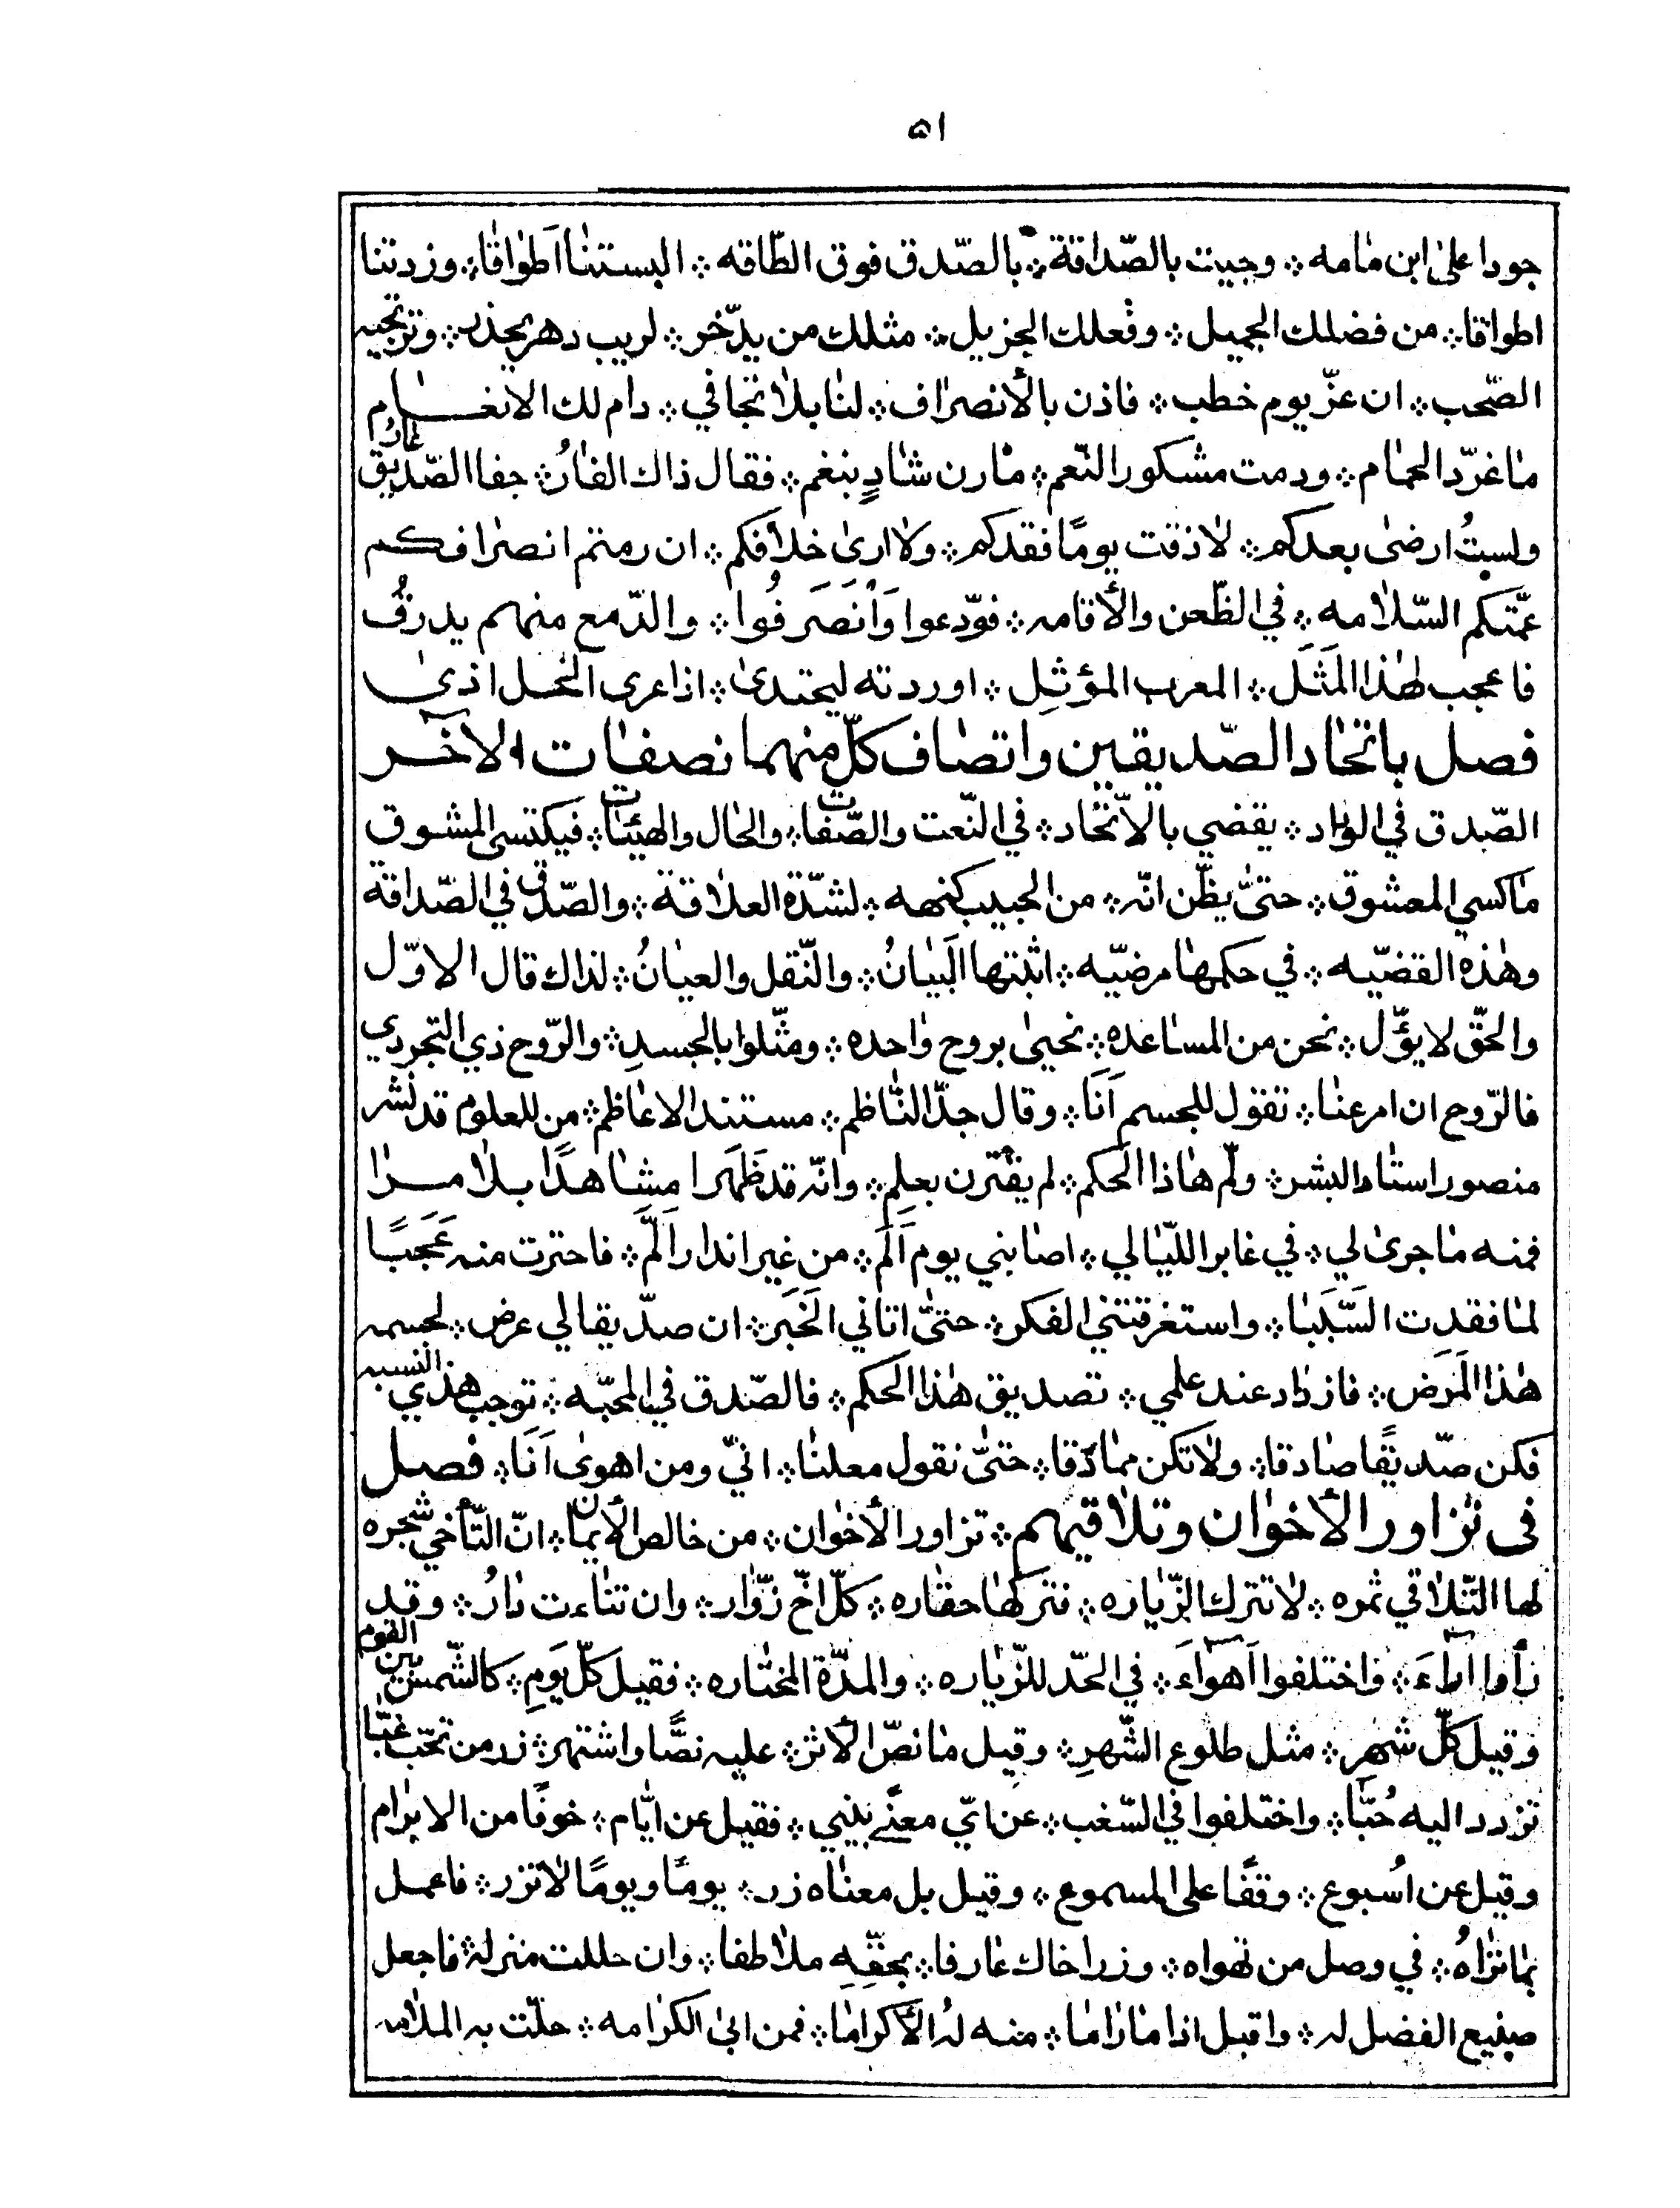 ٥١
جودا على ابن مامه ؞ وجيت بالصّداقة ؞ بالصّدق فوق الطّاقه ؞ البستنا اَطواقا ؞ وزدتنا
اطواقا ؞ من فضلك الجميل ؞ وفعلك الجزيل ؞ مثلك من يدّخر ؞ لريب دهر يحذر ؞ وترتجيه
الصّحب ؞ ان عزّ يوم خطب ؞ فاذن بالأنصراف ؞ لنا بلا تجافي ؞ دام لك الانعام
ما غرّد الحمام ؞ ودمت مشكور النّعم ؞ ما رن شادٍ بنغم ؞ فقال ذاك الفارُ ؞ جفا الصّديق عارُ
ولستُ ارضى بعدكم ؞ لا ذقت يومًا فقدكم ؞ ولا ارى خلافكم ؞ ان رمتم انصرافكم
عمّتكم السّلامه ؞ في الظّعن والأقامه ؞ فودّعوا وَاْنصَرَفُوا ؞ والدّمع منهم يذرفُ
فاعجب لهذا المَثَل ؞ المعرب المؤثِل ؞ اوردته ليحتدى ؞ اذا عرى الخل اذى
فصل باتحاد الصّديقين واتصاف كلّ منهما بصفات الآخر
الصّدق في الوداد ؞ يقضي بالاتّحاد ؞ في النّعت والصّفات ؞ والحال والهيئات ؞ فيكتسي المشوق
ما كسي المعشوق ؞ حتىّ يظّن انّه ؞ من الحبيب كنهه ؞ لشدّة العلاقة ؞ والصّدق في الصّداقة
وهذه القضيّه ؞ في حكمها مرضيّه ؞ اثبتها البَيانُ ؞ والنّقل والعيانُ ؞ لذاك قال الاوّل
والحّق لا يؤّل ؞ نحن من المساعده ؞ نحيى بروح واحده ؞ ومثّلوا بالجسدِ ؞ والرّوح ذي التجردي
فالرّوح ان امر عنا ؞ تقول للجسم اَنَا ؞ وقال جدّ النّاظم ؞ مستند الاعاظم ؞ من للعلوم قد نشر
منصور استاد البشر ؞ ولّم هاذا الحكم ؞ لم يقترن بعلِمِ ؞ وانّه قد ظَهَرا مشاهدًا بلا مرا
فمنه ما جرى لي ؞ في غابر اللّيالي ؞ اصابني يوم اَلَم ؞ من غير اندار اَلَمّ ؞ فاحترت منه عَجَبًا
لما فقدت السَّبَبا ؞ واستغرقتني الفكر ؞ حتىّ اتاني الخَبَر ؞ ان صدّيقا لي عرض ؞ لجسمه
هذا المَرَض ؞ فازداد عند علمي ؞ تصديق هذا الحكم ؞ فالصّدق في المحبّه ؞ توجب هذي النسبه
فكن صدّيقًا صادقا ؞ ولا تكن مماذقا ؞ حتىّ نقول معلنا ؞ انيّ ومن اهوى اَنَا ؞ فصل
في تزاور الأخوان وتلاقيهم ؞ تزاور الأخوان ؞ من خالص الأيمان ؞ انّ التّأخي شجره
لها التّلاقي ثمره ؞ لا تترك الزّياره ؞ فتركها حقاره ؞ كلّ اخّ زوّار ؞ وان تناءت دارُ ؞ وقد
رأوا آراءَ ؞ واختلفوا اَهواءَ ؞ في الحّد للزّياره ؞ والمدّة المختاره ؞ فقيل كلّ يَومِ ؞ كالشّمس بين القوم
وقيل كلّ شهرِ ؞ مثل طلوع الشّهرِ ؞ وقيل ما نصّ الأثر ؞ عليه نصًّا واشتهر ؞ زر من تحّب غبّا
تزدد اليه حُبّا ؞ واختلفوا في السّغب ؞ عن ايّ معنًى ينبي ؞ فقيل عن ايّام ؞ خوفًا من الابرام
وقيل عن اُسبوع ؞ وقفًا على المسموع ؞ وقيل بل معناه زر ؞ يومًا ويومًا لا تزر ؞ فاعمل
بما تراهُ ؞ في وصل من تهواه ؞ وزر اخاك عارفا ؞ بحقّهِ ملاطفا ؞ وان حللت منزله ؞ فاجعل
صنيع الفضل له ؞ واقبل اذا ما راما ؞ منه لهُ الأكراما ؞ فمن ابى الكرامه ؞ حلّت به الملامه